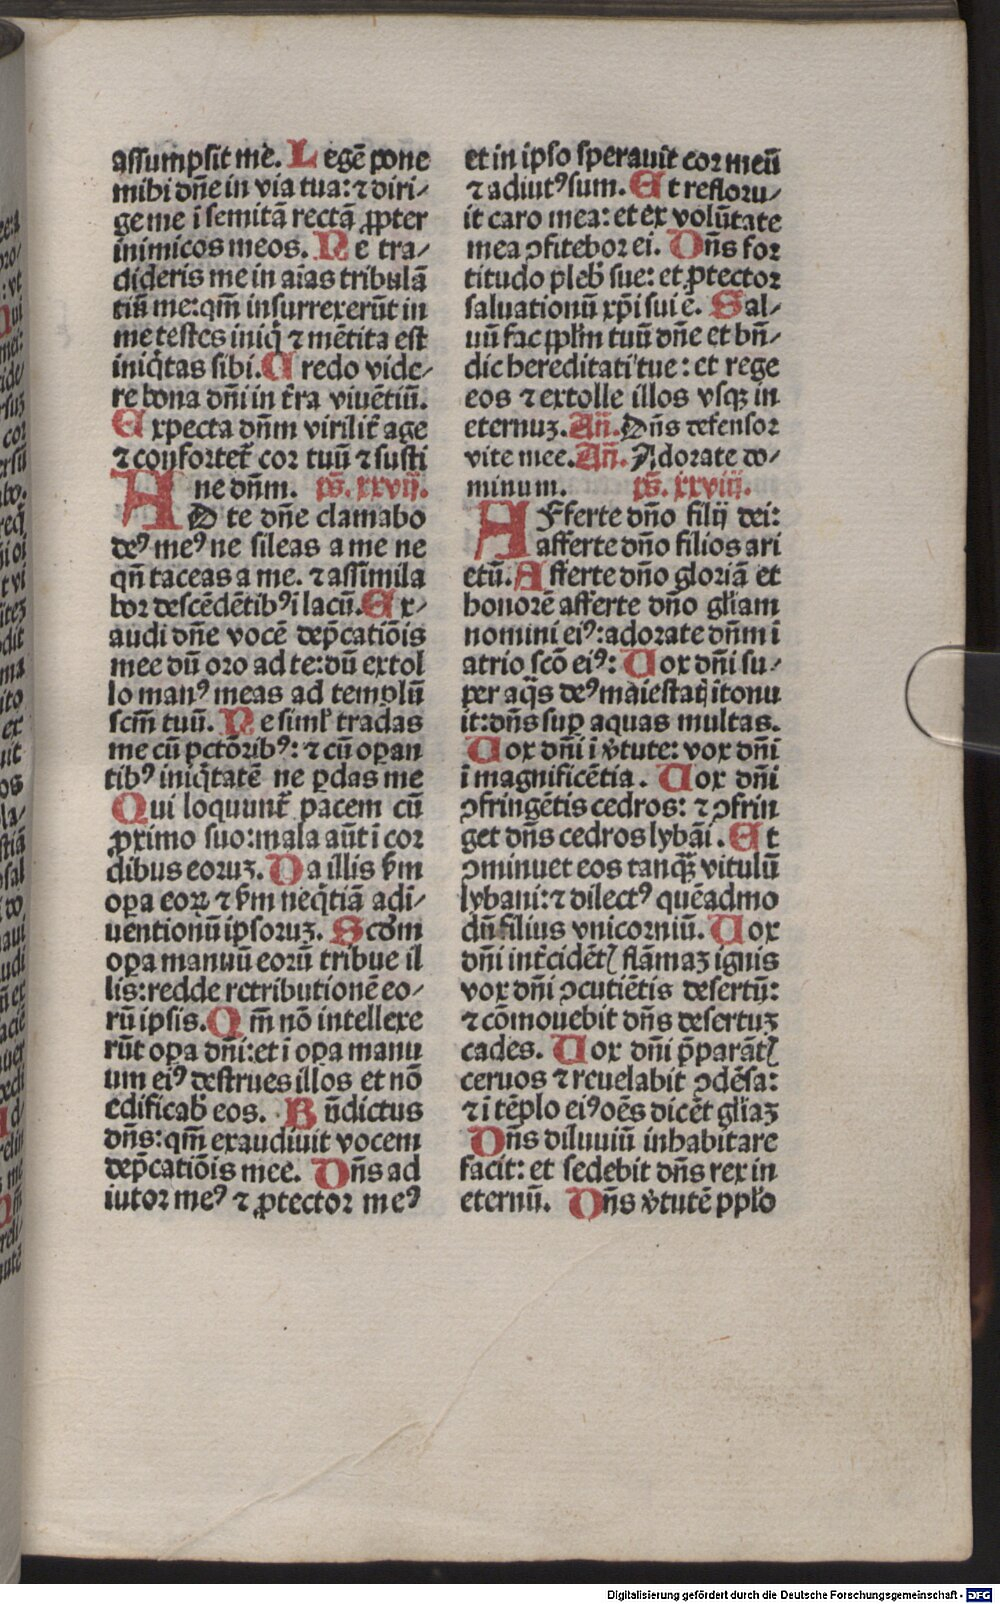 assumpsit me. Legē pone
mihi dn̄e in via tua: ⁊ diri⸗
ge me ī semitā rectā ꝓpter
inimicos meos. Ne tra⸗
dideris me in aīas tribulā
tiū me: qm̄ insurrexerūt in
me testes iniq̇ ⁊ mētita est
iniq̇tas sibi. Credo vide⸗
re bona dn̄i in t̄ra viuētiū.
Expecta dn̄m virilit̄ age
⁊ confortet̄ cor tuū ⁊ susti
ne dn̄m. ps̄. xxvij.
AD te dn̄e clamabo
deꝰ meꝰ ne sileas a me ne
qn̄ taceas a me. ⁊ assimila
bor descēdētibꝰ ī lacū. Ex⸗
audi dn̄e vocē dep̄catiōis
mee dū oro ad te: dū extol
lo manꝰ meas ad templū
scm̄ tuū. Ne siml̓ tradas
me cū pctōribꝰ: ⁊ cū oꝑan
tibꝰ iniq̇tatē ne ꝑdas me
Qui loquunt̄ pacem cū
ꝓximo suo: mala aūt ī cor
dibus eoruꝫ. Da illis ẜm
oꝑa eoꝝ ⁊ ẜm neq̇tiā adī⸗
uentionū ipsoruꝫ. Scd̓m
oꝑa manuū eorū tribue il
lis: redde retributionē eo⸗
rū ipsis. Qm̄ nō intellexe
rūt oꝑa dn̄i: et ī oꝑa manu
um eiꝰ destrues illos et nō
edificab̄ eos. Bn̄dictus
dn̄s: qm̄ exaudiuit vocem
dep̄catiōis mee. Dn̄s ad
iutor meꝰ ⁊ ꝓtector meꝰ
et in ipso sperauit cor meū
⁊ adiutꝰ sum. Et refloru⸗
it caro mea: et ex volūtate
mea ꝯfitebor ei. Dn̄s for
titudo pleb̄ sue: et ꝓtector
saluationū xp̄i sui ē. Sal⸗
uū fac ppl̓m tuū dn̄e et bn̄⸗
dic hereditati tue: et rege
eos ⁊ extolle illos vsqꝫ in
eternuꝫ. An̄. Dn̄s defensor
vite mee. An̄. Adorate do⸗
minum. ps̄. xxviij.
AFferte dn̄o filij dei:
afferte dn̄o filios ari
etū. Afferte dn̄o gloriā et
honorē afferte dn̄o gl̓iam
nomini eiꝰ: adorate dn̄m ī
atrio scō eiꝰ: Vox dn̄i su⸗
per aq̄s deꝰ maiestatꝭ itonu
it: dn̄s suꝑ aquas multas.
Vox dn̄i ī v̓tute: vox dn̄i
ī magnificētia. Vox dn̄i
ꝯfringētis cedros: ⁊ ꝯfrin
get dn̄s cedros lybāi. Et
ꝯminuet eos tanqꝫ vitulū
lybani: ⁊ dilectꝰ quēadmo
dū filius vnicorniū. Vox
dn̄i int̄cidētꝭ flāmaꝫ ignis
vox dn̄i ꝯcutiētis desertū:
⁊ cōmouebit dn̄s desertuꝫ
cades. Vox dn̄i p̄parātꝭ
ceruos ⁊ reuelabit ꝯdēsa:
⁊ ī tēplo eiꝰ oēs dicēt gl̓iaꝫ
Dn̄s diluuiū inhabitare
facit: et sedebit dn̄s rex in
eternū. Dn̄s v̓tutē ppl̓o
Digitalisierung gefördert durch die Deutsche Forschungsgemeinschaft - DFG